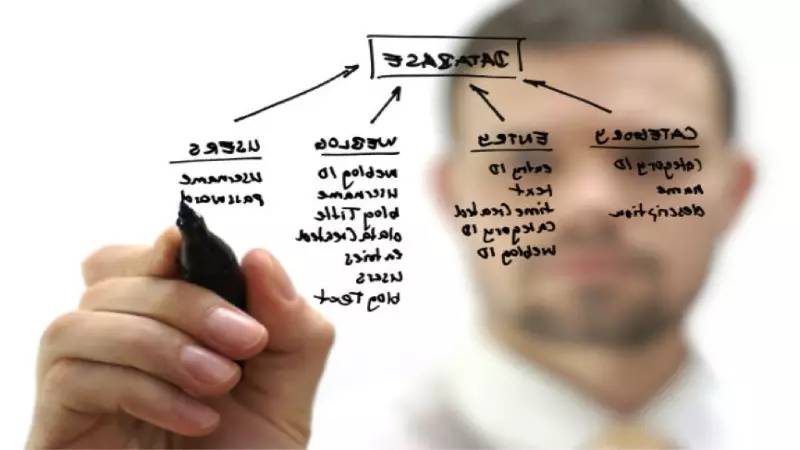 DATABASE
USERS
username
password
WEBLOG
weblog ID
username
blog Title
dataCreated
Entries
users
blog Text
ENTRY
entry ID
text
timeCreated
Category ID
weblog ID
CATEGORY
Category ID
name
description